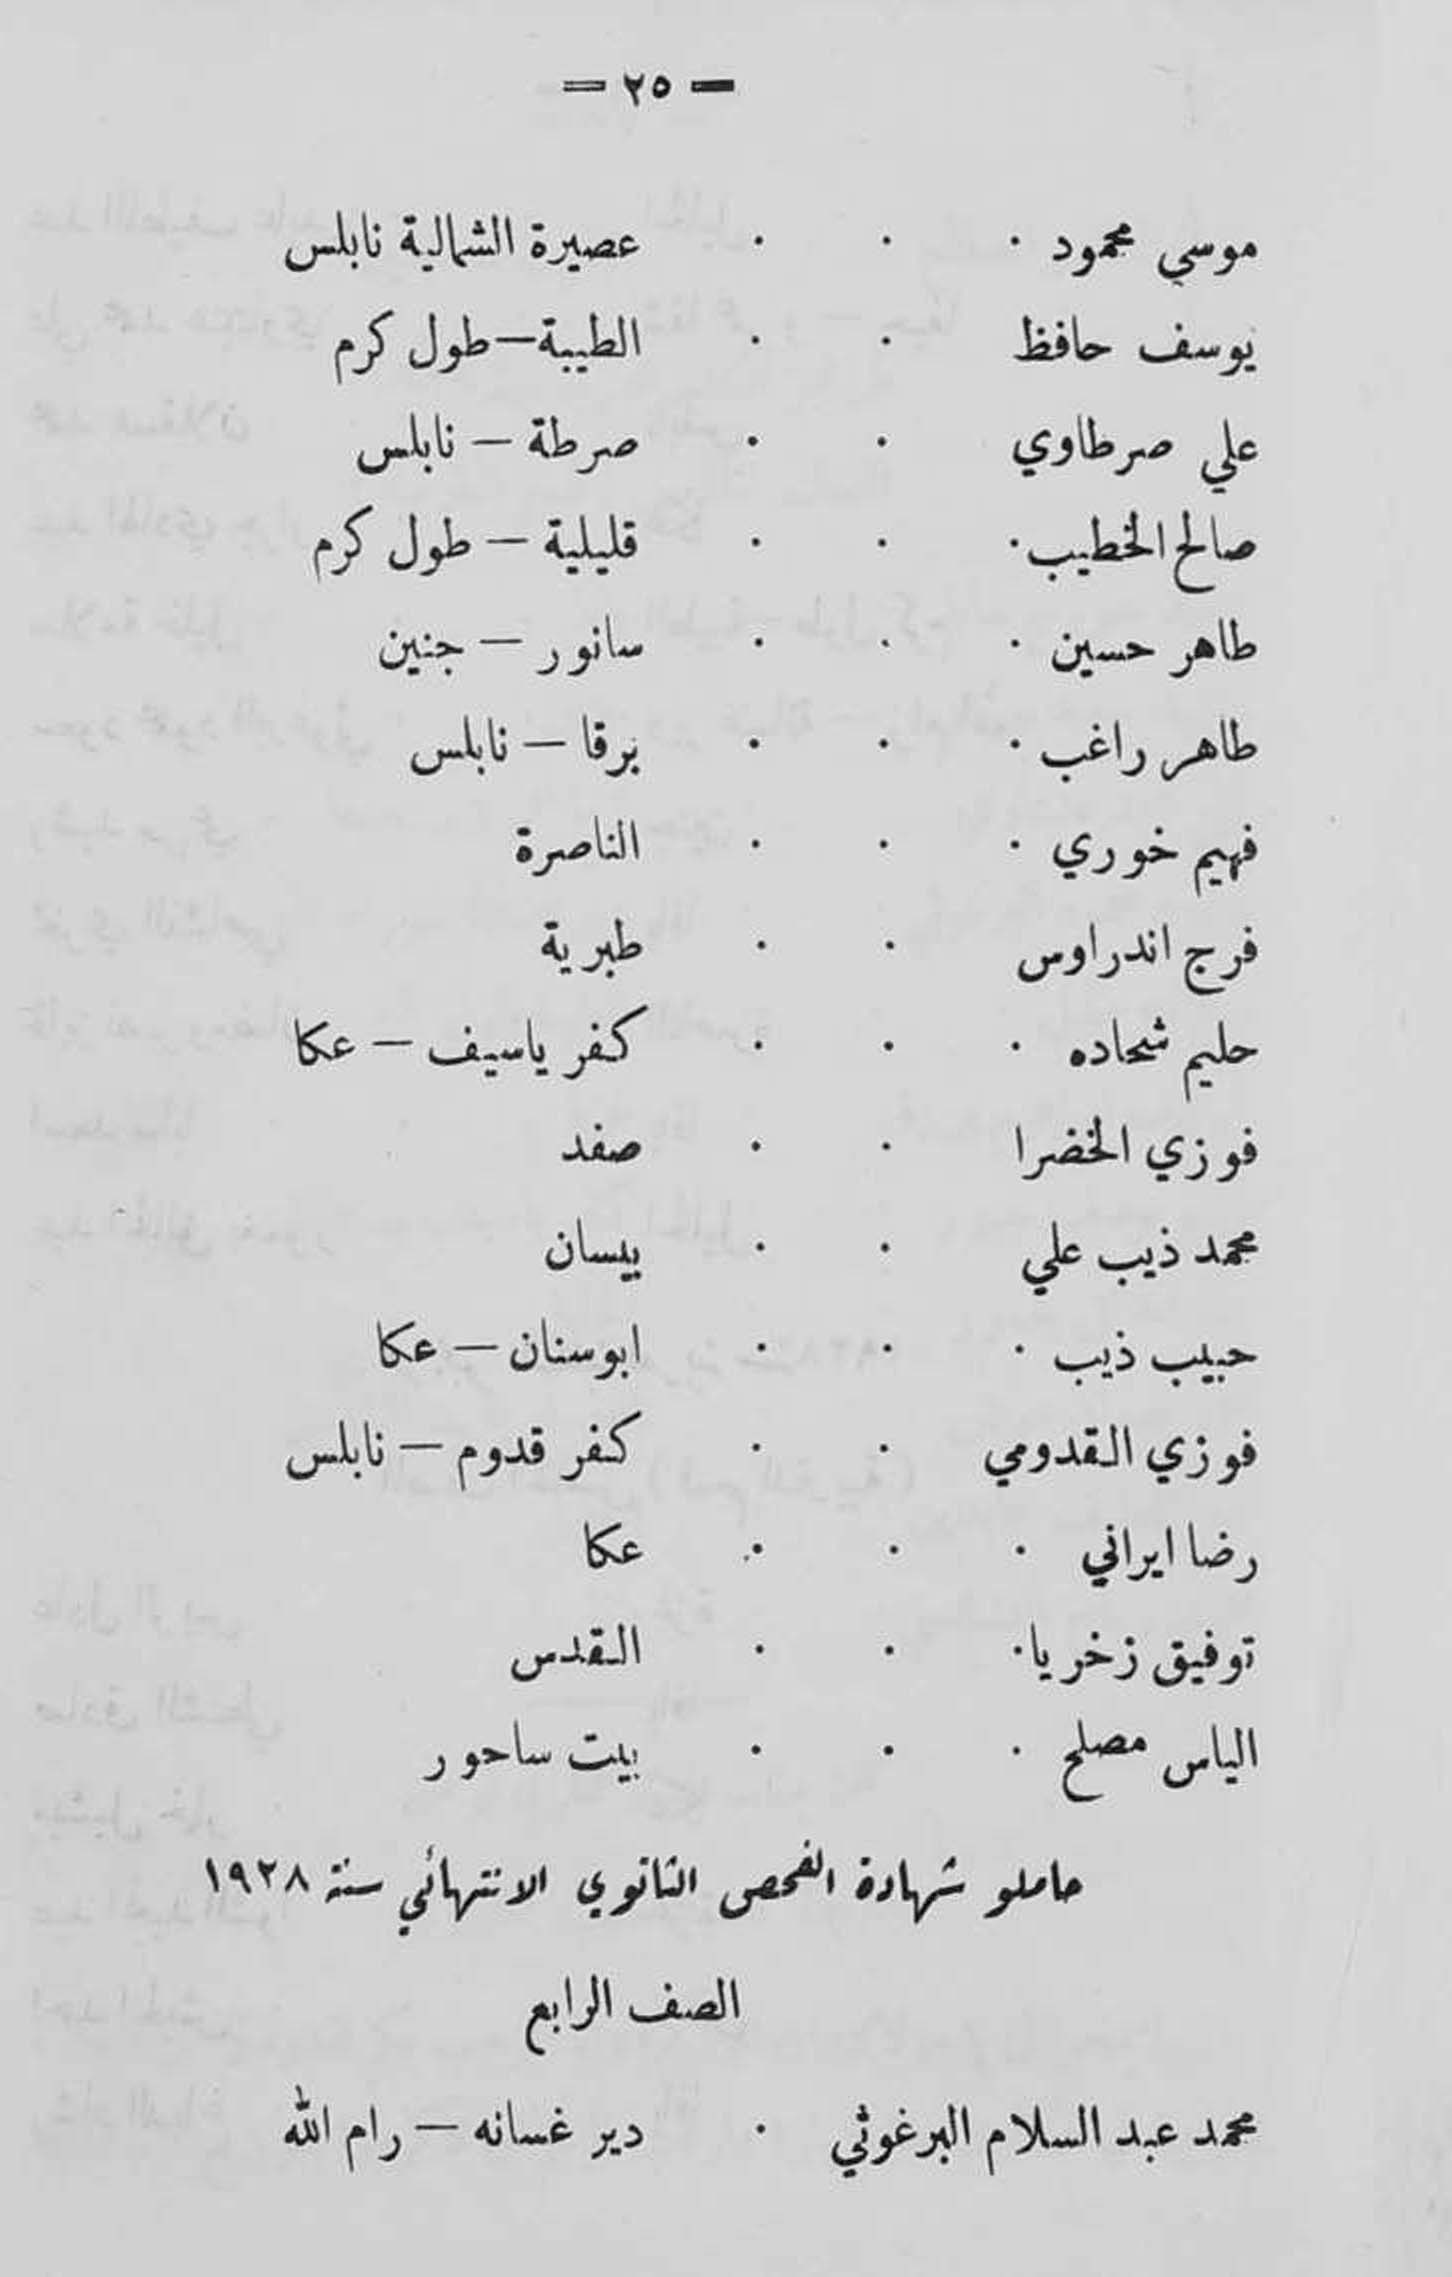 — ٢٥ =
موسي محمود . . . عصيرة الشمالية نابلس
يوسف حافظ . . الطيبة — طول كرم
علي صرطاوي . . صرطة — نابلس
صالح الخطيب . . . قليلية — طول كرم
طاهر حسين . . . سانور — جنين
طاهر راغب . . . برقا — نابلس
فهيم خوري . . . الناصرة
فرج اندراوس . . طبرية
حليم شحاده . . . كفر ياسيف — عكا
فوزي الخضرا . . صفد
محمد ذيب علي . . بيسان
حبيب ذيب . . . ابوسنان — عكا
فوزي القدومي . . كفر قدوم — نابلس
رضا ايراني . . . عكا
توفيق زخريا . . . القدس
الياس مصلح . . . بيت ساحور
حاملو شهادة الفحص الثانوي الانتهائي سنة ١٩٢٨
الصف الرابع
محمد عبد السلام البرغوثي . دير غسانه — رام الله